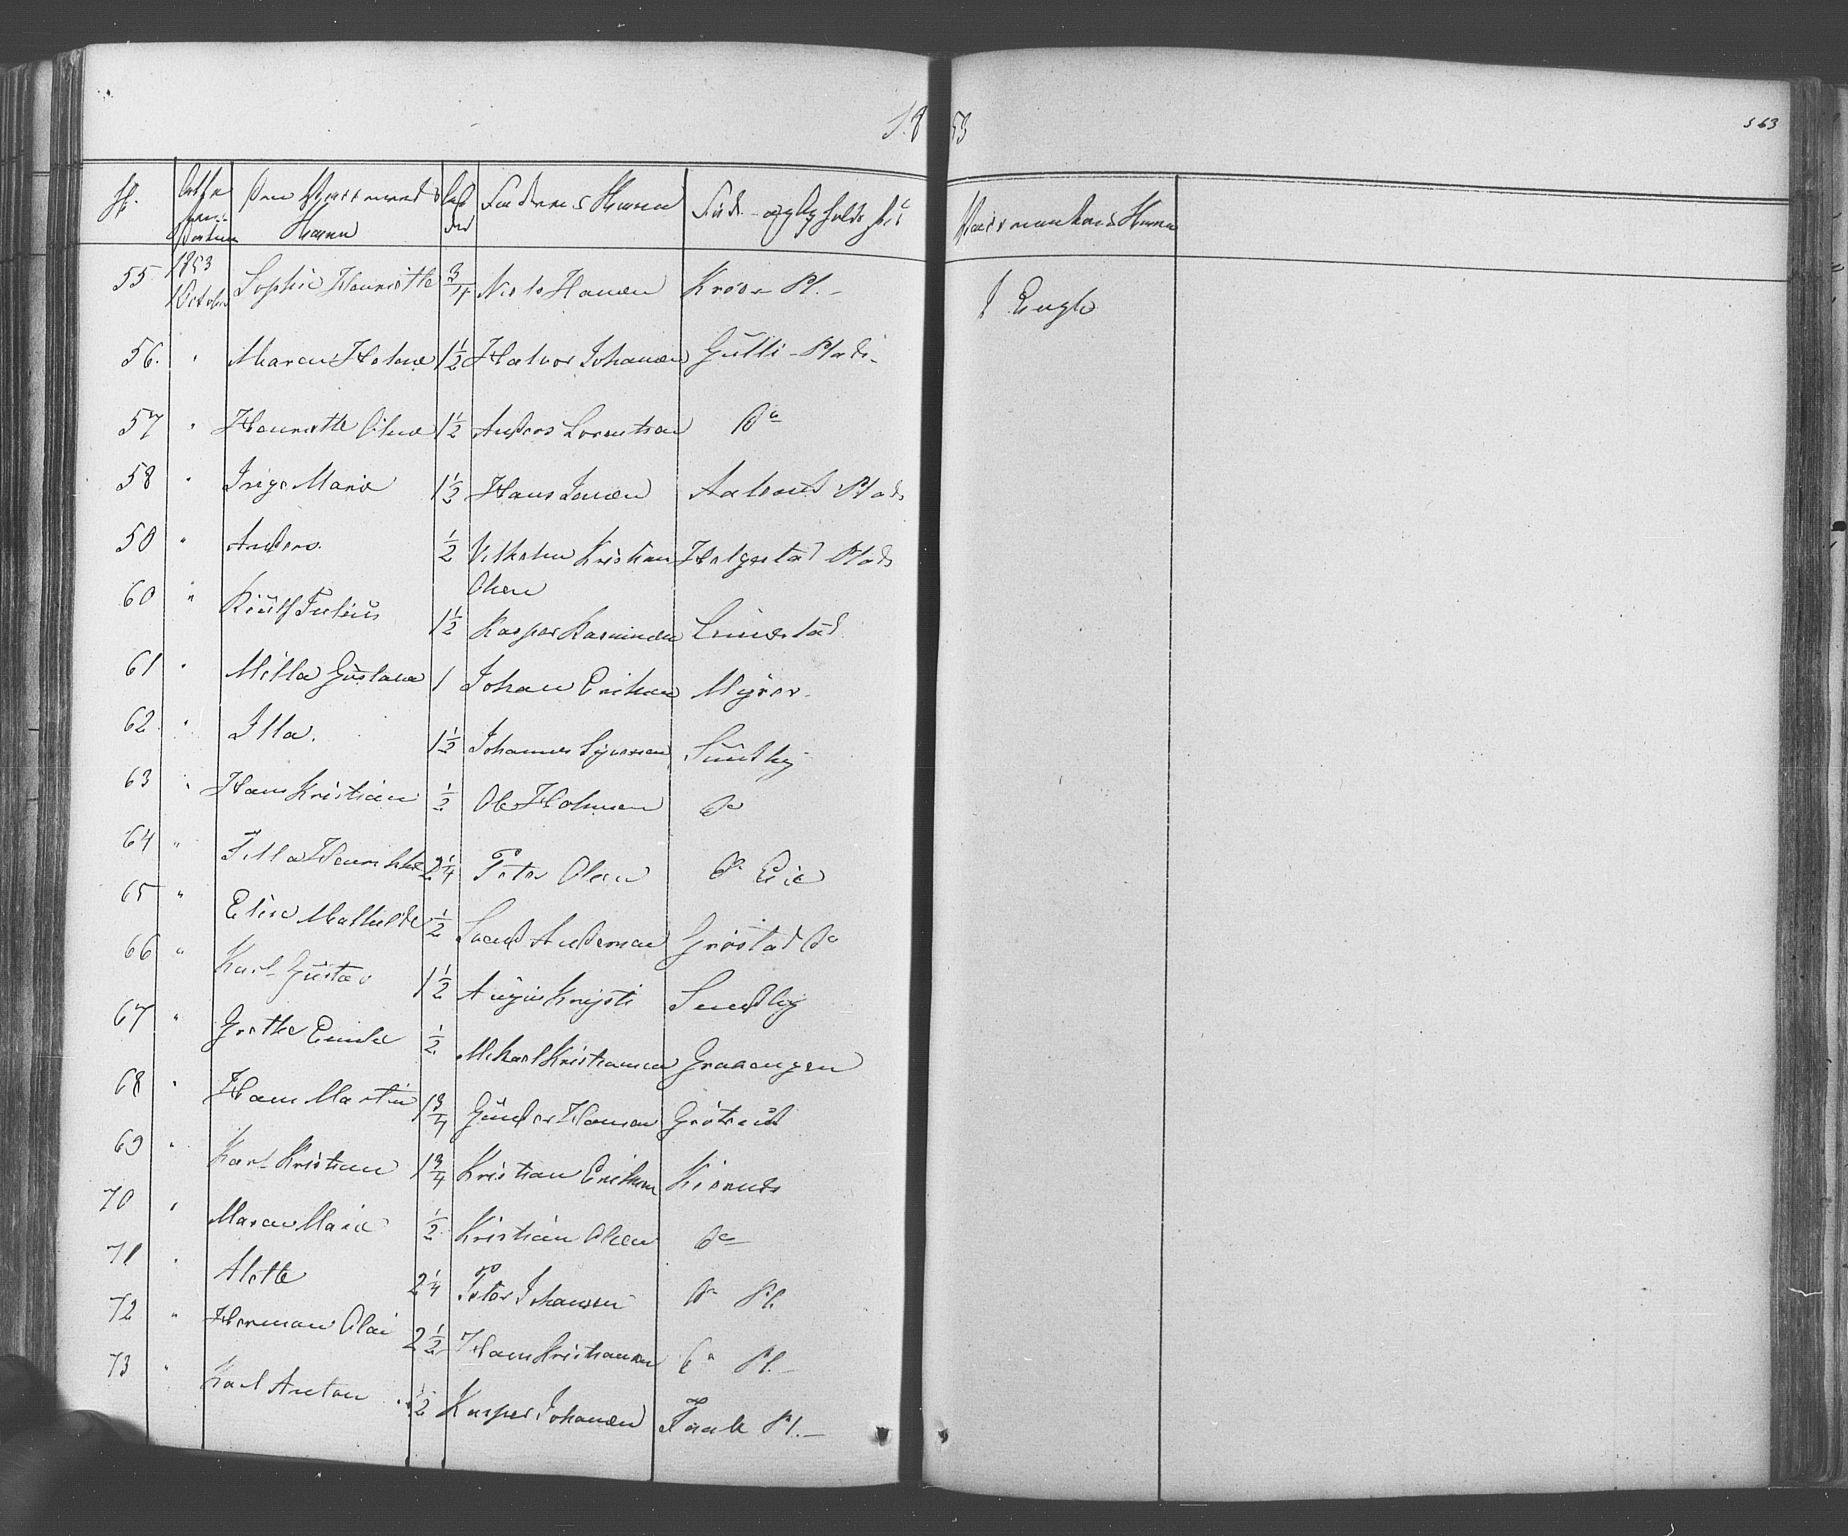 1853
563
№ Attestens Datum Den Vaccineredes Navn Alder Faderens Navn Føde- og Opholdsted Vaccinateurens Navn
55 1853 October Sophie Henriette 3/4 Niels Hansen Kroer Pl. J Engh
56. " Maren Helene 1 1/2 Halvor Johansen Gulli Plads
57 " Henriette Oline 1 1/2 Anders Lorentsen Do
58 " Inge Marie 1 1/2 Hans Jensen Plads
59 " Anders. 1/2 Vilhelm Kristian Olsen Helgestad Plads
60 " Julius 1 1/2 Kasper Linnestad
61 " Milla Gustava 1 Johan Eriksen Myrer
62 " Illa. 1 1/2 Johannes Syversen Sundby
63 " Hans Kristian 1/2 Ole Do
64 " Henrikke 2 1/4 Peter Olsen Do Eie
65 " Elise Mathilde 1/2 Svend Andersen Grøstad Do
66 " Karl Gustav 1 1/2 Sundby
67 " Grethe 1/2 Mikael Kristiansen Graaengen
68 " Hans Martin 1 3/4 Gunder Hansen
69 " Karl Kristian 1 3/4 Kristian Eriksen
70 " Maren Marie 1/2 Kristian Olsen Do
71 " Alette 2 1/4 Peter Johansen Do Pl.
72 " Herman Olai 2 1/2 Hans Kristiansen Do Pl.
73 " Karl Anton 1/2 Kasper Johansen Pl.